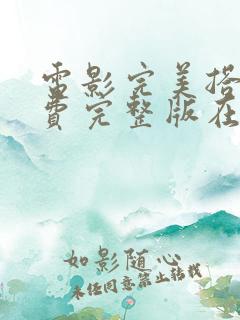 电影完美搭
费完整版在
如影随心
未经同意禁止转载